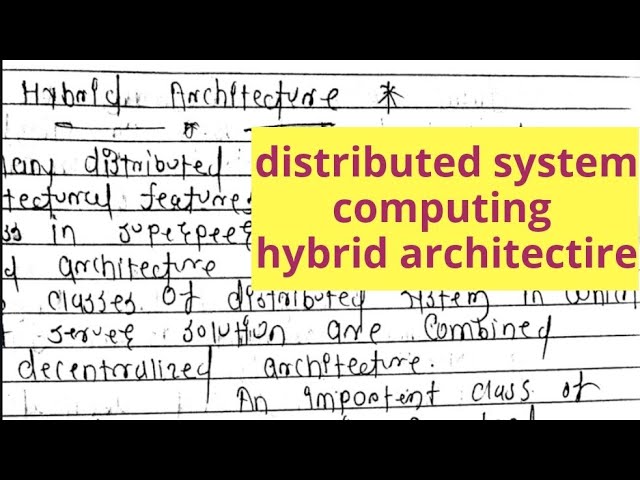 Hybrid Architecture *
any distributed
tectural features
ss in superpeer
d architecture
classes of distributed system in which
server solution are combined
decentralized architecture.
An important class of
distributed system
computing
hybrid architectire